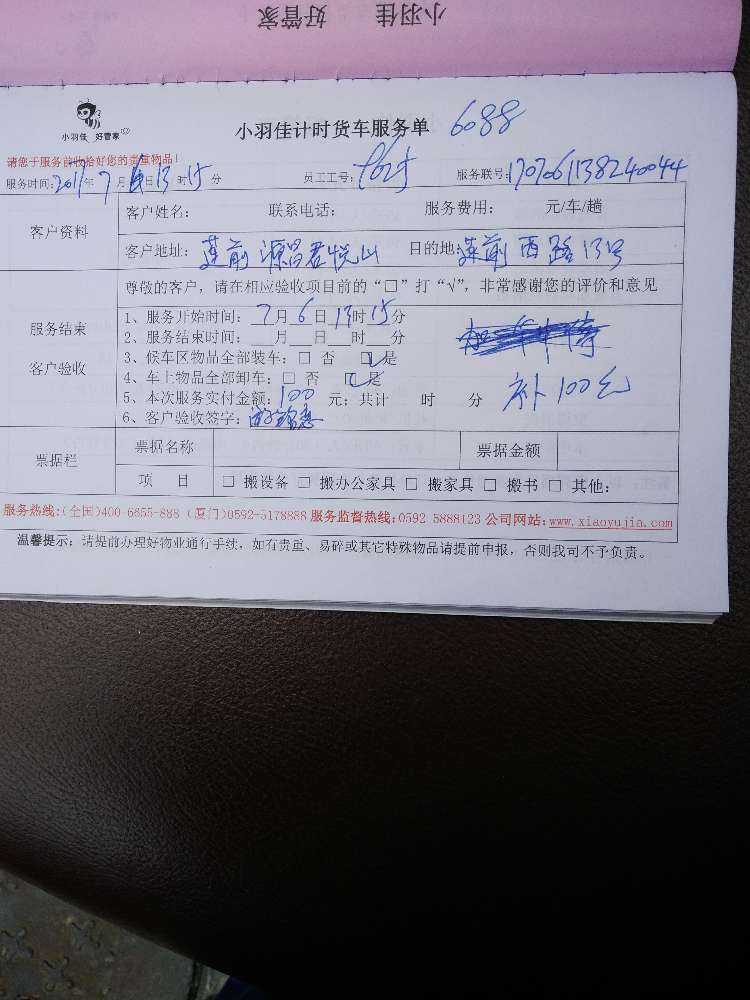 小羽佳 好管家
小羽佳 好管家
小羽佳计时货车服务单 6088
请您于服务前收拾好您的贵重物品!
服务时间:2017年7月6日13时15分 员工工号: 服务联号:1707061138240044
客户资料
客户姓名: 联系电话: 服务费用: 元/车/趟
客户地址:莲前 源昌君悦山 目的地:莲前西路13号
服务结束
客户验收
尊敬的客户,请在相应验收项目前的“□”打“√”,非常感谢您的评价和意见
1、服务开始时间:7月6日13时15分
2、服务结束时间:__月__日__时__分
3、候车区物品全部装车:□ 否 ☑是
4、车上物品全部卸车:□ 否 ☑是
5、本次服务实付金额:100 元;共计 时 分 补100元
6、客户验收签字:
票据栏
票据名称 票据金额
项 目 □ 搬设备 □ 搬办公家具 □ 搬家具 □ 搬书 □ 其他:
服务热线:(全国)400-6655-888 (厦门)0592-5178888 服务监督热线:0592 5888123 公司网站:www.xiaoyujia.com
温馨提示:请提前办理好物业通行手续,如有贵重、易碎或其它特殊物品请提前申报,否则我司不予负责。